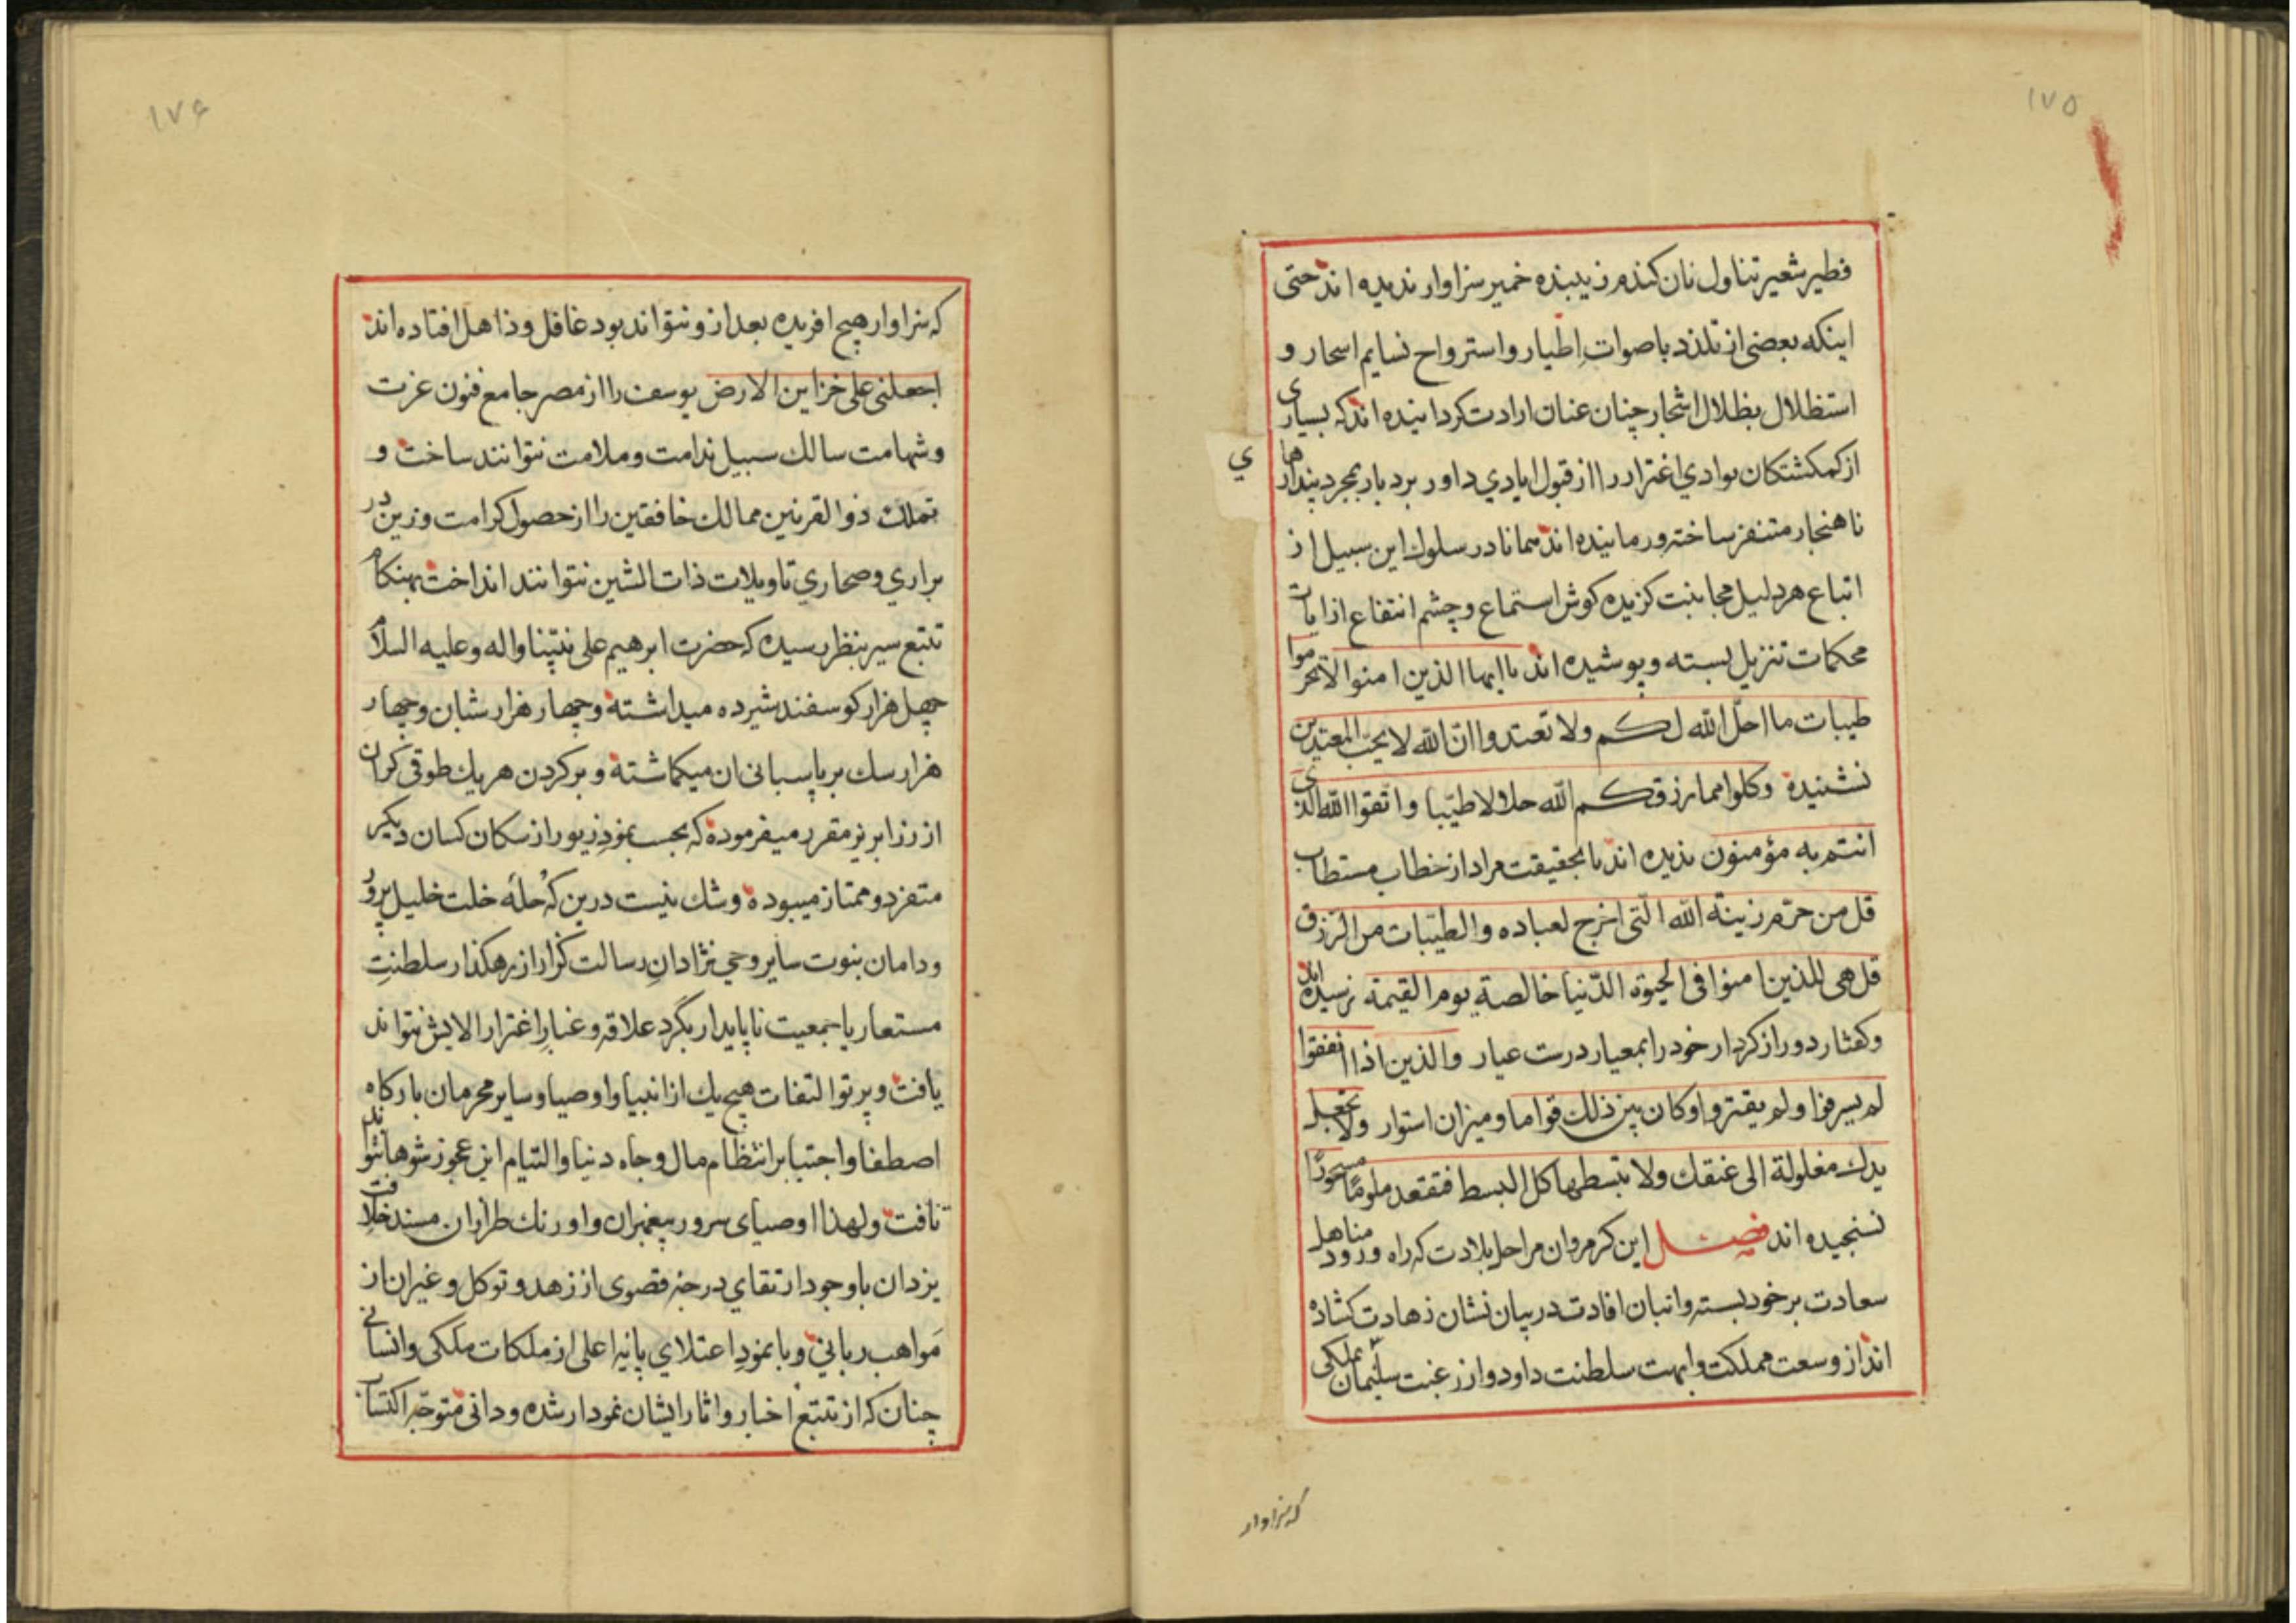 ۱۷۵
فطیر شعیر تناول نان کندم زیبنده خمیر سزاوار ندیده اند حتی
اینکه بعضی از تلذذ باصوات اطیار و استرواح نسایم اسحار و
استظلال بظلال اشجار چنان عنان ارادت کردانیده اند که بسیاری
از کمکشتکان بوادي اغترار را از قبول ایادي داور بردبار بمجرد پندارهای
ي
ناهنجار متنفر ساخته ورمانیده اند همانا در سلوك این سبیل از
اتباع هر دلیل مجانبت کزیده کوش استماع و چشم انتفاع از ایات
محکمات تنزیل بسته و پوشیده اند یا ایها الذین امنوا لا تحرموا
طیبات ما احل الله لکم ولا تعتدوا ان الله لا یحب المعتدین
نشنیده وکلوا مما رزقکم الله حلالا طیّبا واتقوا الله الذی
انتم به مؤمنون ندیده اند یا بحقیقت مراد از خطاب مستطاب
قل من حرّم زینة الله الّتی اخرج لعباده والطیّبات من الرّزق
قل هی للذین امنوا فی الحیوة الدّنیا خالصة یوم القیمة نرسیده اند
وکفتار دور از کردار خود را بمعیار درست عیار والذین اذا انفقوا
لم یسرفوا ولم یقتروا وکان بین ذلك قواما و میزان استوار ولا تجعل
یدك مغلولة الی عنقك ولا تبسطها کل البسط فتقعد ملومًا محسورًا
نسنجیده اند فصل این کرم روان مراحل بلادت که راه ورود مناهل
سعادت بر خود بسته و انبان افادت در بیان نشان زهادت کشاده
اند از وسعت مملکت و ابهت سلطنت داود و از رغبت سلیمان بملکی
که سزاوار
۱۷۶
که سزاوار هیچ افریده بعد از و نتواند بود غافل و ذاهل افتاده اند
اجعلنی علی خزاین الارض یوسف را از مصر جامع فنون عزت
و شهامت سالك سبیل ندامت و ملامت نتوانند ساخت و
تملك ذو القرنین ممالك خافقین را از حصول کرامت و زین در
براري و صحاري تاویلات ذات الشین نتوانند انداخت بهنکام
تتبع سیر بنظر رسیده که حضرت ابرهیم علی نبیّنا واله وعلیه السلام
چهل هزار کوسفند شیرده میداشته و چهار هزار شبان و چهار
هزار سك بر پاسبانی ان میکماشته و بر کردن هر یك طوقی کران
از زر ابریز مقرر میفرموده که بحسب نمود زیور از سکان کسان دیکر
متفرد و ممتاز میبوده و شك نیست درین که حلهٔ خلت خلیل پرور
و دامان نبوت سایر وحي نژادان رسالت کزار از رهکذار سلطنت
مستعار یا جمعیت ناپایدار بکرد علاقه و غبار اغترار الایش نتواند
یافت و پرتو التفات هیچ یك از انبیا و اوصیا و سایر محرمان بارکاه
اصطفا و اجتبا بر انتظام مال و جاه دنیا و التیام این عجوز شوها نتواند
تافت و لهذا اوصیای سرور پیغمبران و اورنك طرازان مسند خلافت
یزدان با وجود ارتقاي درجه قصوی از زهد و توکل و غیر ان از
مواهب رباني و با نمود اعتلاي پایهٔ اعلی از ملکات ملکی و انسانی
چنان که از تتبع اخبار و اثار ایشان نمودار شده و دانی متوجّه اکتساب